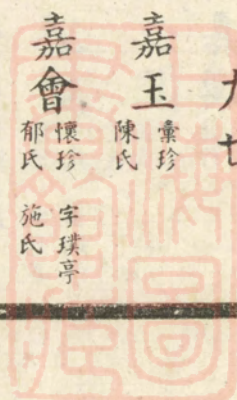 嘉玉
彙珍
陳氏
嘉會
懷珍 字璞亭
郁氏 施氏